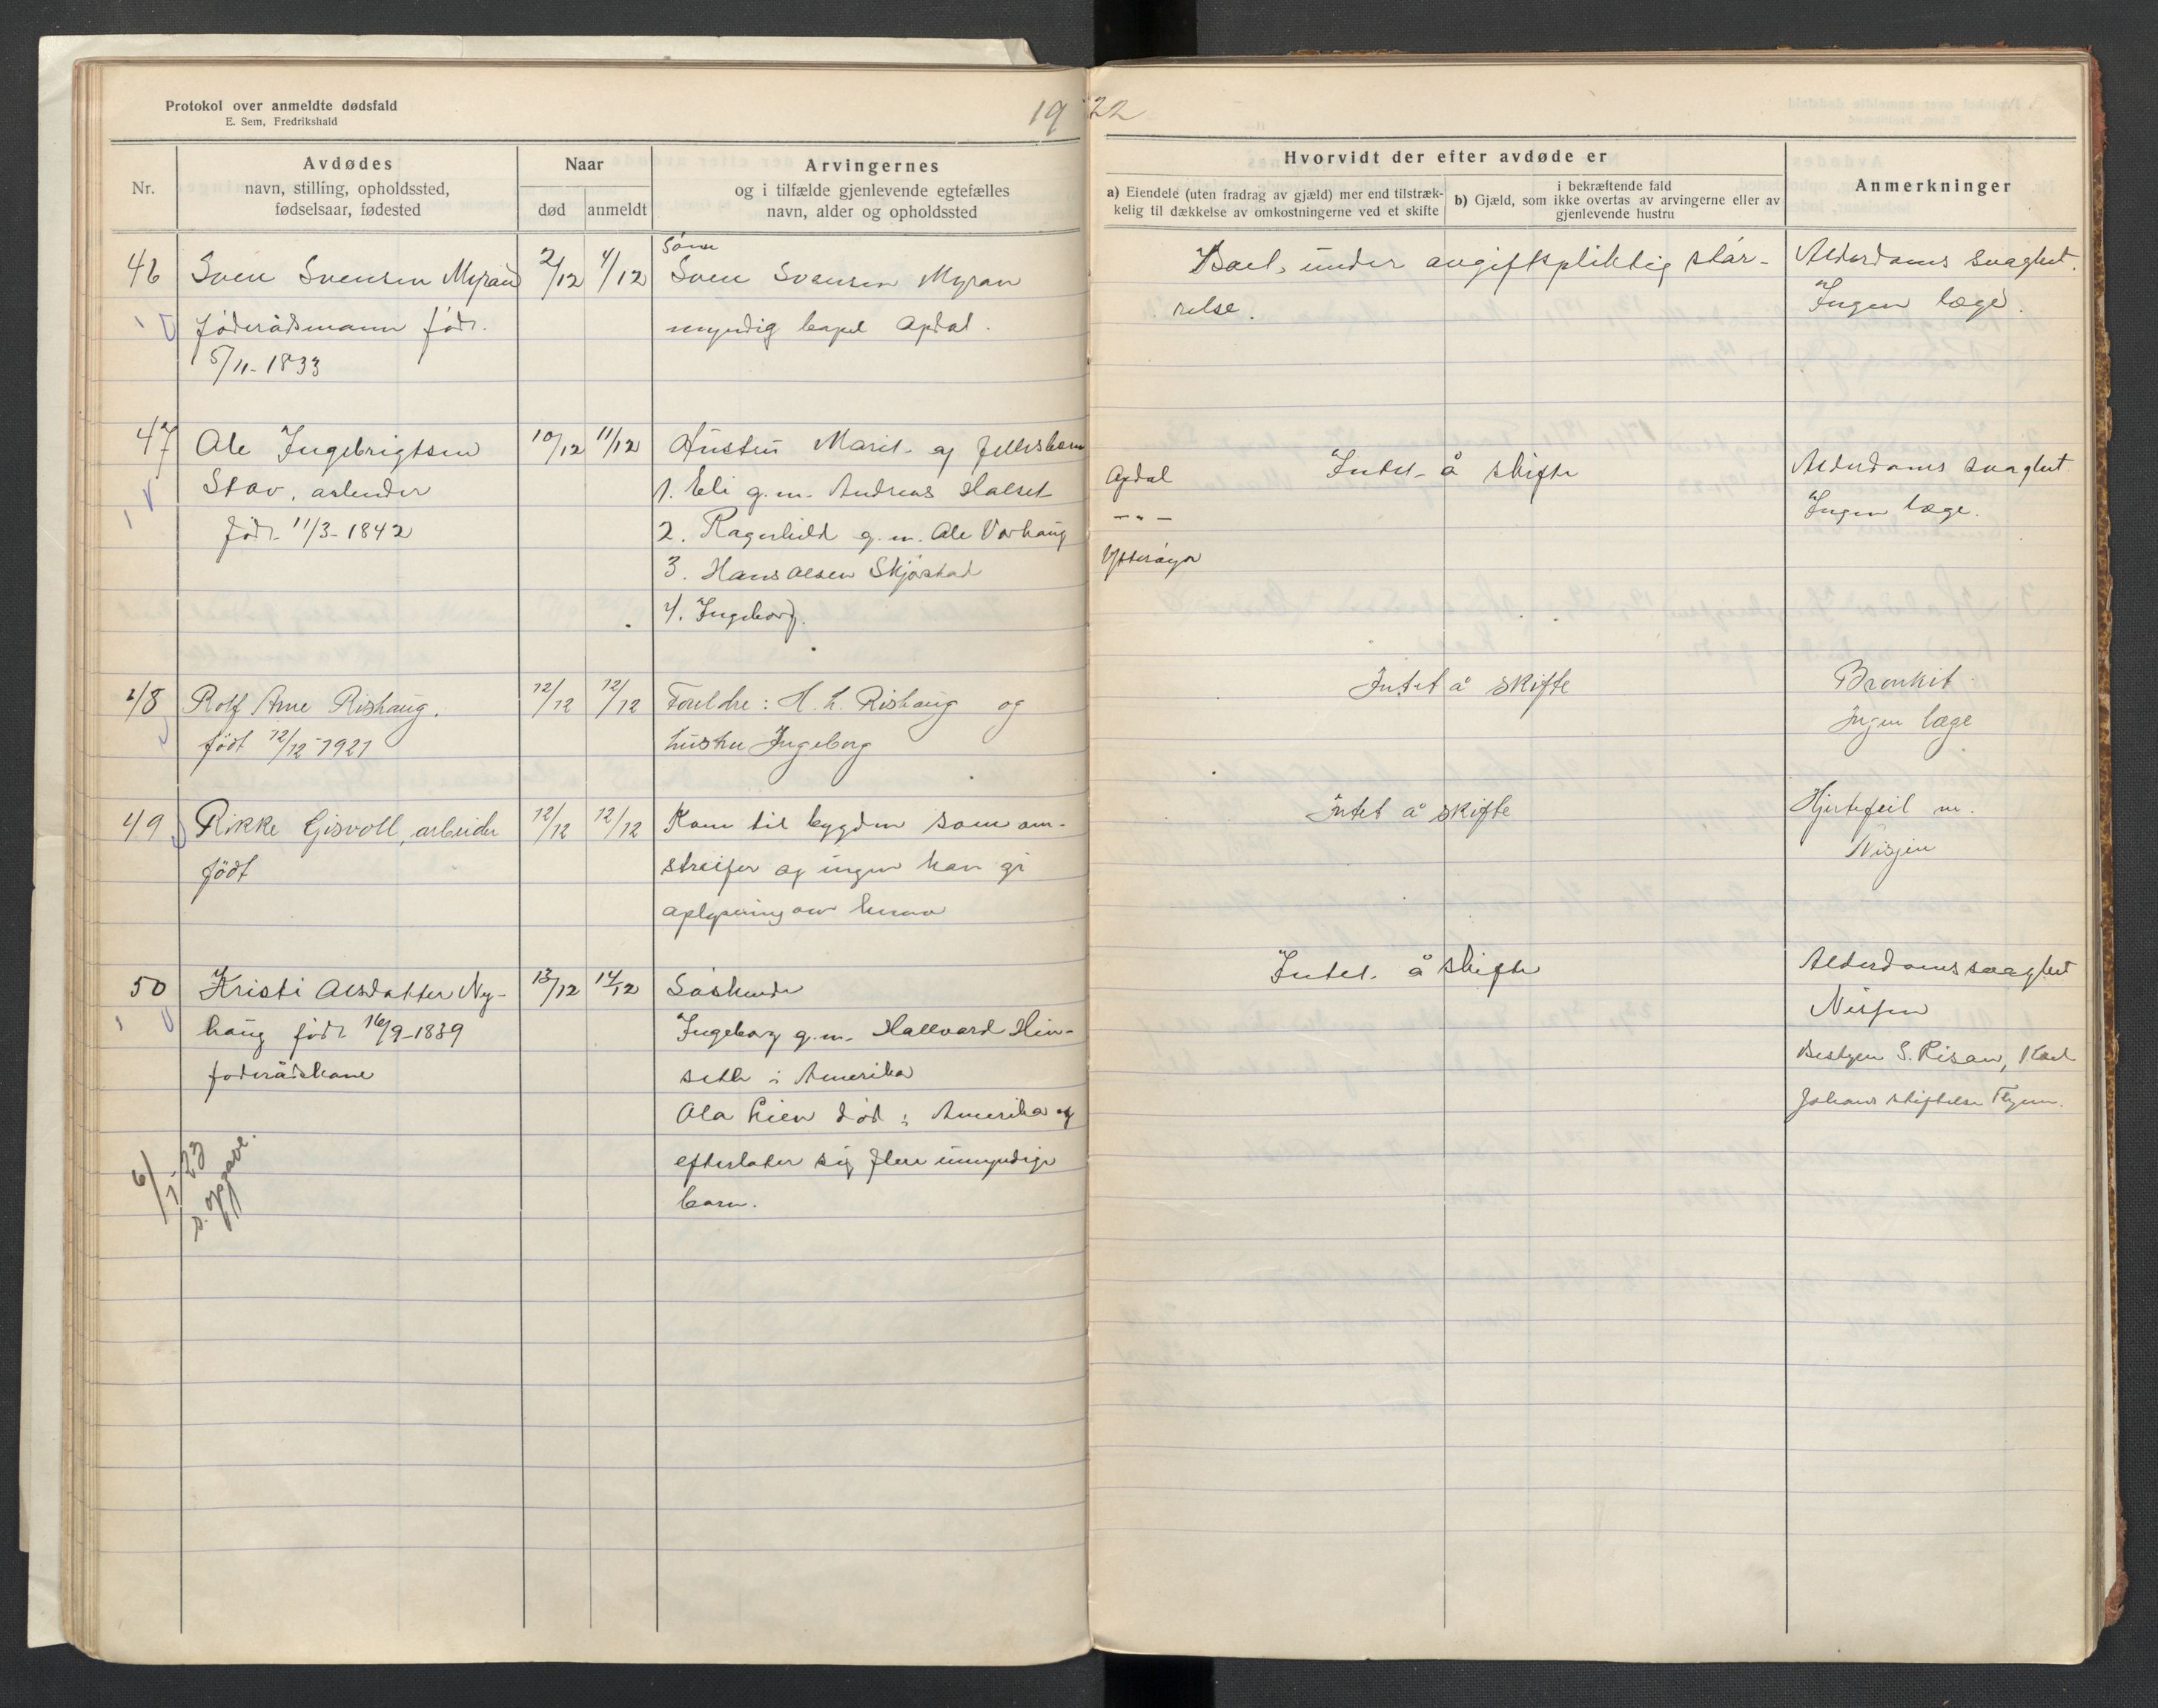 Protokol over anmeldte dødsfald
E. Sem, Fredrikshald
19 22
Nr.
Avdødes
navn, stilling, opholdssted,
fødselsaar, fødested
Naar
død
anmeldt
Arvingernes
og i tilfælde gjenlevende egtefælles
navn, alder og opholdssted
Hvorvidt der efter avdøde er
a) Eiendele (uten fradrag av gjæld) mer end tilstræk-
kelig til dækkelse av omkostningerne ved et skifte
i bekræftende fald
b) Gjæld, som ikke overtas av arvingerne eller av
gjenlevende hustru
Anmerkninger
46
Sven Svensen Myran
föderådsmann föd.
5/11-1833
2/12
4/12
Sven Svensen Myran
myndig Opdal.
Boet under avgiftspliktig stör-
relse.
Alderdoms svaghet.
Ingen læge.
47
Ole Ingebrigtsen
Stav, arbeider
föd. 11/3-1842
10/12
11/12
Hustru Marit og fellesbarn
1. Eli g.m. Andreas Halset
Opdal
2. Ragnhild g.m. Ole Vorhaug
-"-
3. Hans Olsen Skjöstad
Ytteröyen
4. Ingeborg.
Intet å skifte
Alderdoms svaghet
Ingen læge.
48
Rolf Arne Rishaug.
födt 12/12-1921
12/12
12/12
Foreldre: H. L. Rishaug og
hustru Ingeborg
Intet å skifte
Bronkit
Ingen læge
49
Rikke Gisvoll, arbeider
födt
12/12
12/12
Kom til bygden som om-
streifer og ingen kan gi
oplysning om henne
Intet å skifte
Hjertefeil m.
50
Kristi Olsdatter Ny-
haug föd. 16/9-1839
foderådskone
13/12
14/12
Söskende
Ingeborg g.m. Hallvard Hin-
setk i Amerika
Ola Lien död i Amerika og
efterlater sig flere umyndige
barn.
Intet å skifte
Alderdomssvaghet
Nissen
Bestyrer S. Risan, Karl
Johans stiftelse
6/1-23
s. opgave.